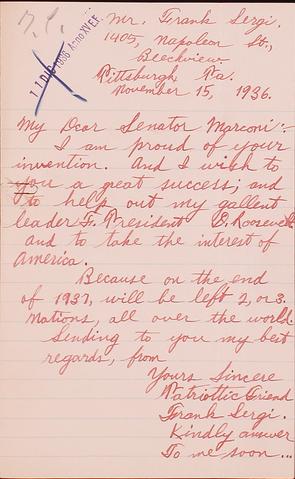 Mr. Frank Sergi.
1405, Napoleon St.,
Beechview
Pittsburgh Pa.
November 15, 1936.
11 DIC 1936 Anno XV E.F.
My Dear Senator Marconi:
I am proud of your
invention. And I wish to
you a great success; and
to help out my gallent
leader F. President D. Roosevelt
and to take the interest of
America.
Because on the end
of 1937, will be left 2, or 3.
Nations, all over the world.
Sending to you my best
regards, from
Yours Sincere
Patriottic Friend
Frank Sergi.
Kindly answer
To me soon...